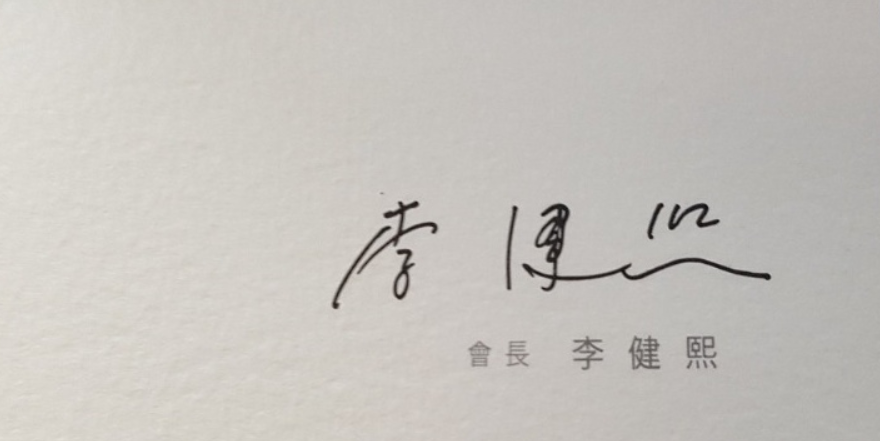 李健熙
會長 李健熙